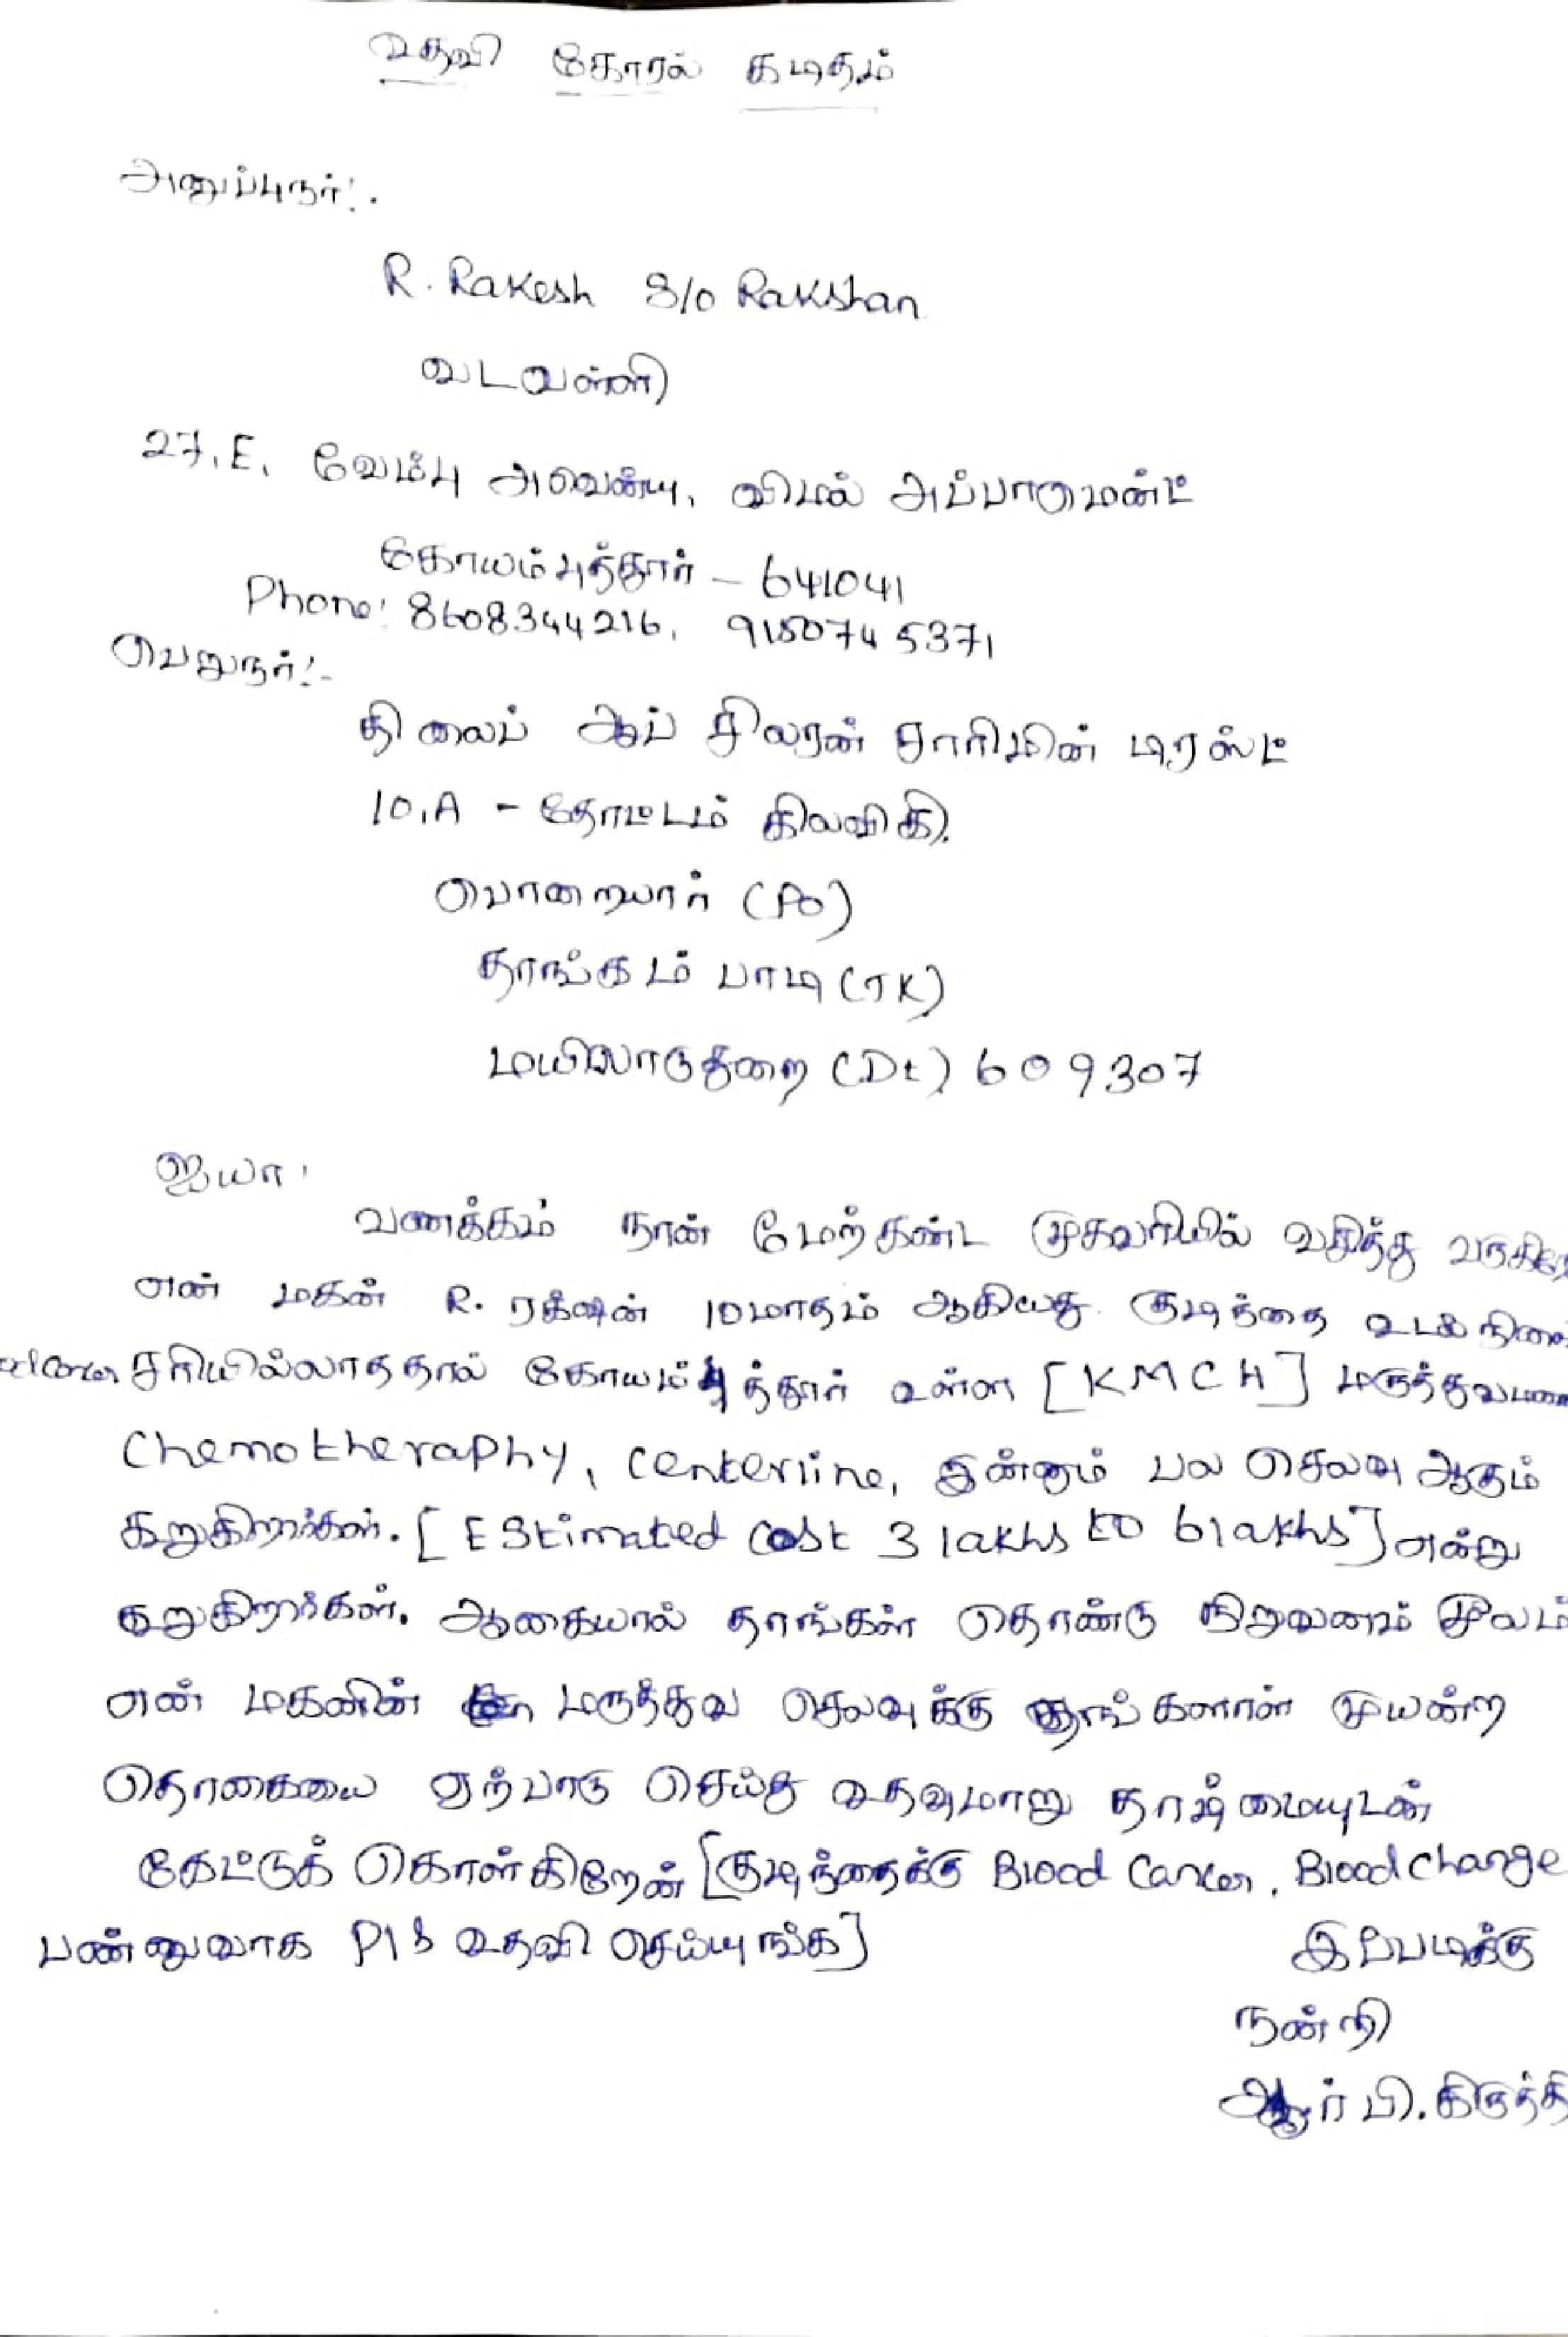 உதவி கோரல் கடிதம்
அனுப்புநர்:.
R. Rakesh S/o Rakshan
வடவள்ளி
27.E. வேம்பு அவென்யு, விமல் அப்பாருமெண்ட்
கோயம்புத்தூர் - 641041
Phone: 8608344216, 9150745371
பெறுநர்:-
திலைப் ஆப் சிலரன் சாரிமின் டிரஸ்ட்
10.A - தோட்டம்
பொறையார் (PO)
தரங்கம் பாடி (TK)
மயிலாடுதுறை (Dt) 609307
ஐயா,
வணக்கம் நான் மேற்கண்ட முகவரியில் வசித்து
என் மகன் R. ரக்ஷன் 10மாதம் ஆகியது. குழந்தை
சரியில்லாததால் கோயம்புத்தூர் உள்ள [KMCH]
Chemotheraphy, Centerline, இன்னும் பல செலவு ஆகும்
கூறுகிறார்கள். [EStimated Cost 3 lakhs to 6 lakhs] என்று
கூறுகிறார்கள். ஆகையால் தாங்கள் தொண்டு நிறுவனம் மூலம்
என் மகனின் மருத்துவ செலவுக்கு தாங்களான் முயன்ற
தொகையை ஏற்பாடு செய்து உதவுமாறு தாழ்மையுடன்
கேட்டுக் கொள்கிறேன் [குழந்தைக்கு Blood Cancer, Blood Change
பண்ணுவாக Pls உதவி செய்யுங்க]
இப்படிக்கு
நன்றி
ஆர் பி.